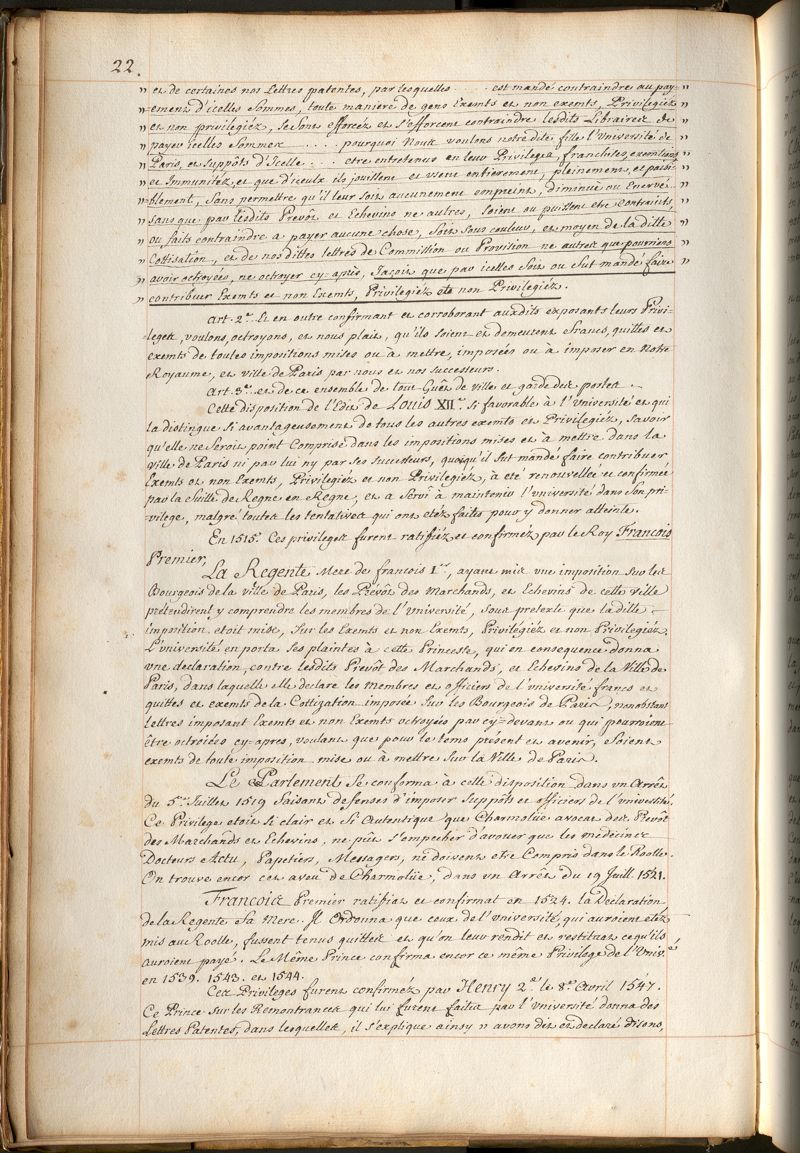 22.
" et de certaines nos Lettres patentes, par lesquelles .... est mandé contraindre au pay- "
" =ement d'icelles Sommes, toute manière de gens Exempts et non exempts, Privilegiéz "
" et non privilegiéz, Se Sont efforcéz et s'efforcent contraindre lesdits Libraires de "
" payer icelles Sommes ..... pourquoi Nous voulons notredite fille l'Université de "
" Paris, et suppôts d'Icelle .... etre entretenue en leur Privileges, franchises, exemtions "
" et Immunitéz, et que d'iceulx ils jouissent et usent entièrement, pleinement, et paisi- "
" =blement, Sans permettre qu'il leur soit aucunement empreint, diminué ou Enervé "
" sans que par lesdits Prevôt et Echevins ne autres, soient ou puissent etre Contraints "
" ou faits contraindre a payer aucune chose, Soit Sous couleur, et moyen de la ditte "
" Cottisation, et de nos dittes lettres de Commission ou Provision ne autres que pourrions "
" avoir octroyées, ne octroyer cy-après, Jaçois que par icelles Soit ou fut mandé faire "
" contribuer Exemts et non Exemts, Privilegiéz ete non Privilegiéz.
Art. 2.e Et en outre confirmant et corroborant auxdits exposants leurs Privi-
leges, voulons, octroyons, et nous plait, qu'ils soient et demeurent francs, quittes et
exemts de toutes impositions mises ou à mettre, imposées ou à imposer en Notre
Royaume, et ville de Paris par nous et nos successeurs.
Art. 3.e et de ce ensemble de tout Guêt de ville et garde des portes.
Cette disposition de l'Edit de Louis XII.e Si favorable à l'Université et qui
la distingue Si avantageusement de tous les autres exemts et Privilegiéz, savoir
qu'elle ne Seroit point Comprise dans les impositions mises et à mettre dans la
Ville de Paris ni par lui ny par ses successeurs, quoiqu'il fut mandé faire contribuer
Exemts et non Exemts, Privilegiéz et non Privilegiéz, à été renouvellée et confirmée
par la Suitte de Regne en Regne, et a Servi à maintenir l'université dans Son pri-
vilege, malgré toutes les tentatives qui ont etéz faites pour y donner atteinte.
En 1515. Ces privileges furent ratifiéz et confirméz par le Roy François
Premier,
La Regente Mere de françois I.er, ayant mis une imposition Sur les
Bourgeois de la ville de Paris, les Prevôt des Marchands, et Echevins de cette ville
prétendirent y comprendre les membres de l'Université, Sous pretexte que la ditte
imposition etoit mise, Sur les Exemts et non Exemts, Privilégiéz et non Privilegiéz.
L'université en porta Ses plaintes à cette Princesse, qui en consequence donna
une declaration, contre lesdits Prevôt des Marchands, et Echevins de la Ville de
Paris, dans laquelle elle declare les membres et officiers de l'université francs et
quittes et exemts de la Cottization imposée Sur les Bourgeois de Paris, nonobstant
lettres imposant Exemts et non Exemts octroyées par cy=devant ou qui pourroient
être octroiées cy-apres, voulant que pour le tems présent et avenir, Soient
exemts de toute imposition mise ou à mettre Sur la Ville de Paris.
Le Parlement Se conforma à cette disposition dans un Arrêt
du 5.e Juillet 1519 faisant defenses d'imposer Suppôts et officiers de l'université.
Ce Privilege etoit Si clair et Si Autentique que Charmolüe avocat des Prevôt
des Marchands et Echevins, ne pût S'empecher d'avouer que les médecins
Docteurs Actu, Papetiers, Messagers, ne doivent etre Compris dans le Roolle.
On trouve encor cet aveu de Charmolüe, dans un Arrêt du 19 Juill. 1521.
François Premier ratifiat et confirmat en 1524. la Declaration
de la Regente Sa Mere. Il Ordonna que ceux de l'université, qui auroient etéz
mis au Roolle, fussent tenus quittes et qu'on leur rendit et restituat ce qu'ils
auroient payé. Le Même Prince confirma encor ce même Privilege de l'Univ.té
en 1539. 1543. et 1544.
Ces Privileges furent confirméz par Henry 2.e le 8.e Avril 1547.
Ce Prince sur les Remontrances qui lui furent faites par l'Université donna des
Lettres Patentes, dans lesquelles, il s'explique ainsy " avons dit et declaré disons,